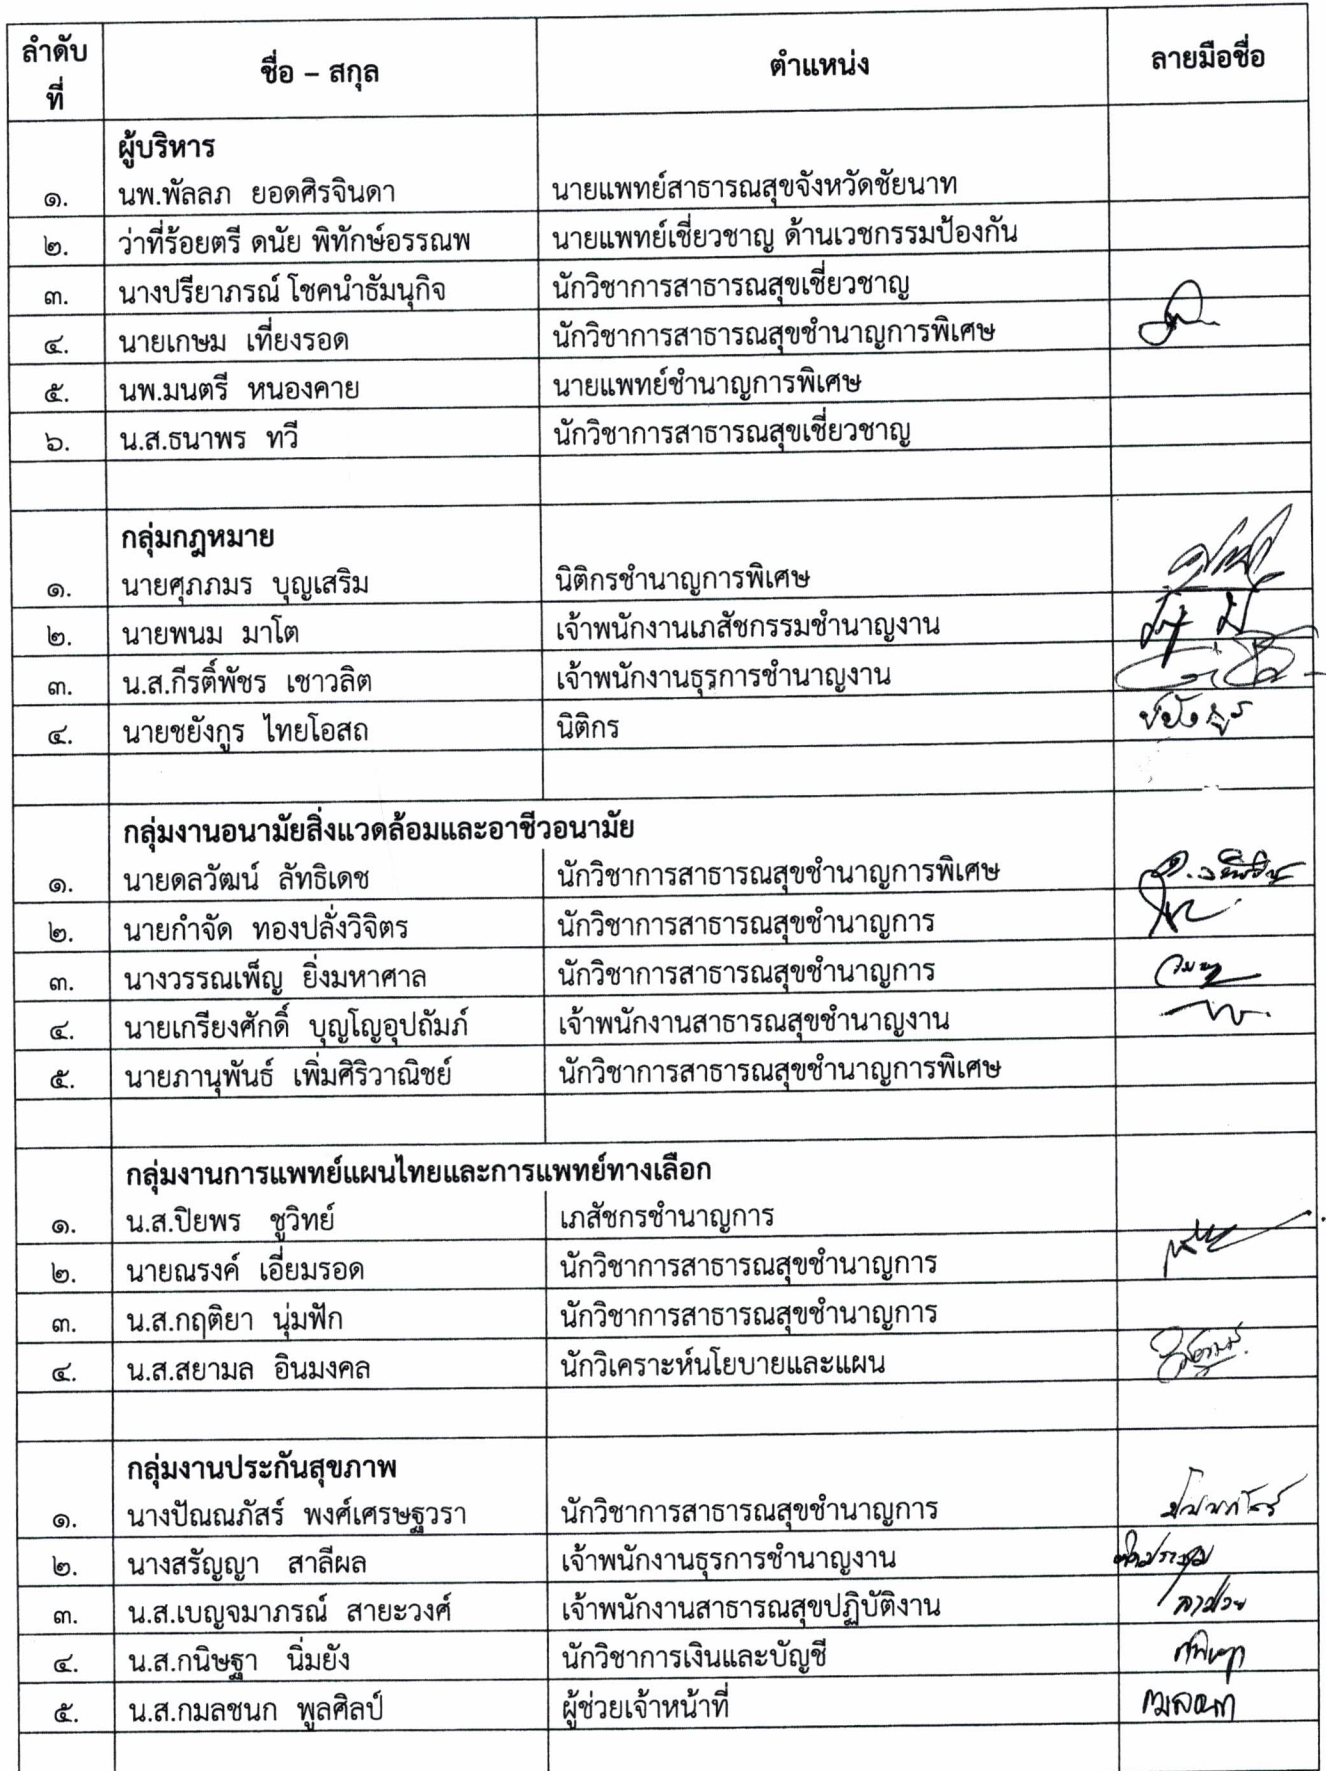 ลำดับ ชื่อ – สกุล ตำแหน่ง ลายมือชื่อ
ที่
ผู้บริหาร
๑. นพ.พัลลภ ยอดศิรจินดา นายแพทย์สาธารณสุขจังหวัดชัยนาท
๒. ว่าที่ร้อยตรี ดนัย พิทักษ์อรรณพ นายแพทย์เชี่ยวชาญ ด้านเวชกรรมป้องกัน
๓. นางปรียาภรณ์ โชคนำธัมนุกิจ นักวิชาการสาธารณสุขเชี่ยวชาญ
๔. นายเกษม เที่ยงรอด นักวิชาการสาธารณสุขชำนาญการพิเศษ
๕. นพ.มนตรี หนองคาย นายแพทย์ชำนาญการพิเศษ
๖. น.ส.ธนาพร ทวี นักวิชาการสาธารณสุขเชี่ยวชาญ
กลุ่มกฎหมาย
๑. นายศุภภมร บุญเสริม นิติกรชำนาญการพิเศษ
๒. นายพนม มาโต เจ้าพนักงานเภสัชกรรมชำนาญงาน
๓. น.ส.กีรติ์พัชร เชาวลิต เจ้าพนักงานธุรการชำนาญงาน
๔. นายชยังกูร ไทยโอสถ นิติกร ชยังกูร
กลุ่มงานอนามัยสิ่งแวดล้อมและอาชีวอนามัย
๑. นายดลวัฒน์ ลัทธิเดช นักวิชาการสาธารณสุขชำนาญการพิเศษ
๒. นายกำจัด ทองปลั่งวิจิตร นักวิชาการสาธารณสุขชำนาญการ
๓. นางวรรณเพ็ญ ยิ่งมหาศาล นักวิชาการสาธารณสุขชำนาญการ
๔. นายเกรียงศักดิ์ บุญโญอุปถัมภ์ เจ้าพนักงานสาธารณสุขชำนาญงาน
๕. นายภานุพันธ์ เพิ่มศิริวาณิชย์ นักวิชาการสาธารณสุขชำนาญการพิเศษ
กลุ่มงานการแพทย์แผนไทยและการแพทย์ทางเลือก
๑. น.ส.ปิยพร ชูวิทย์ เภสัชกรชำนาญการ
๒. นายณรงค์ เอี่ยมรอด นักวิชาการสาธารณสุขชำนาญการ
๓. น.ส.กฤติยา นุ่มฟัก นักวิชาการสาธารณสุขชำนาญการ
๔. น.ส.สยามล อินมงคล นักวิเคราะห์นโยบายและแผน
กลุ่มงานประกันสุขภาพ
๑. นางปัณณภัสร์ พงศ์เศรษฐวรา นักวิชาการสาธารณสุขชำนาญการ
๒. นางสรัญญา สาลีผล เจ้าพนักงานธุรการชำนาญงาน
๓. น.ส.เบญจมาภรณ์ สายะวงศ์ เจ้าพนักงานสาธารณสุขปฏิบัติงาน
๔. น.ส.กนิษฐา นิ่มยัง นักวิชาการเงินและบัญชี
๕. น.ส.กมลชนก พูลศิลป์ ผู้ช่วยเจ้าหน้าที่ กมลชนก